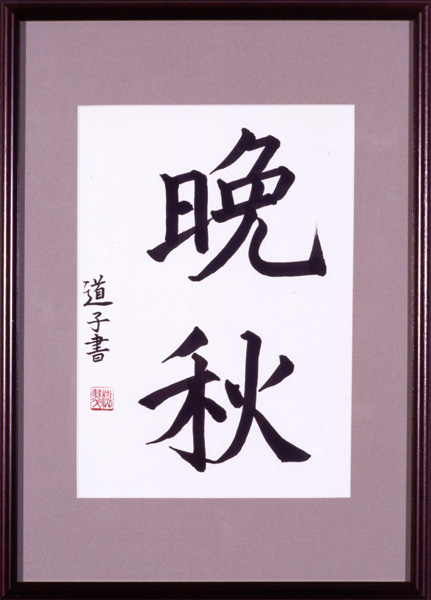 晩秋
道子書